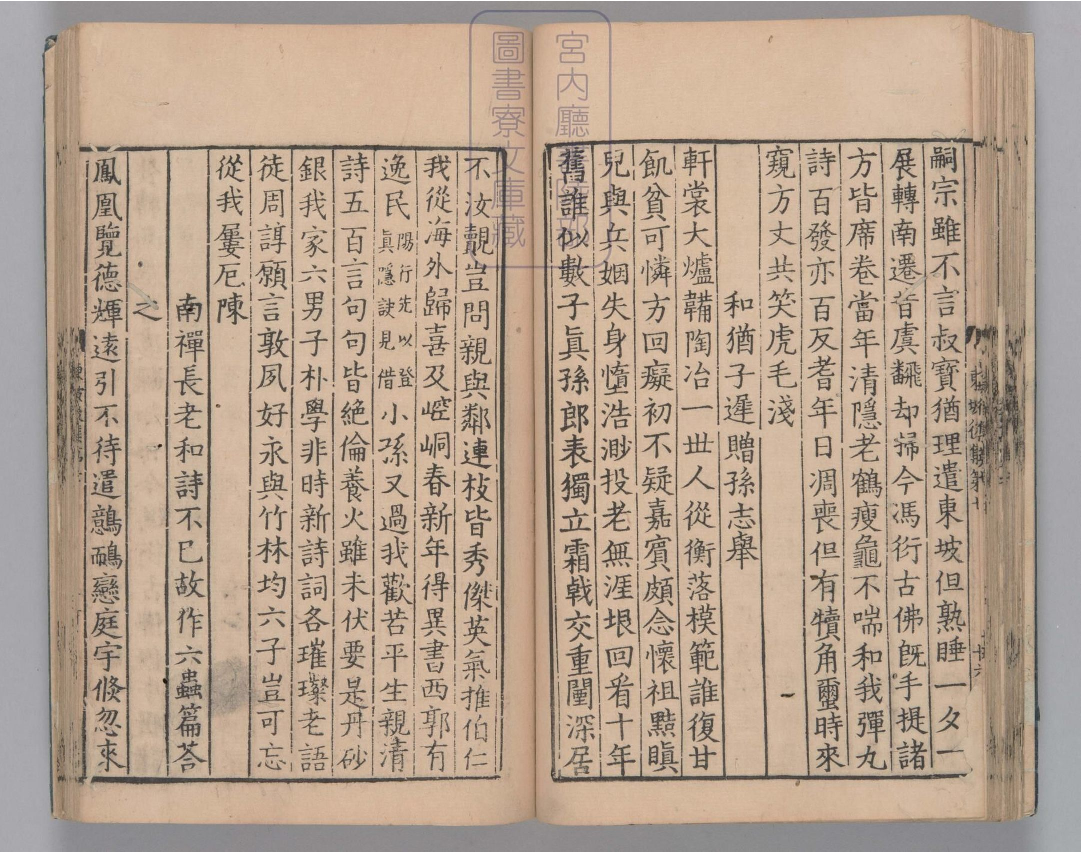 嗣宗雖不言叔寶猶理遣東坡但熟睡一夕一
展轉南遷昔虞翻却掃今馮衍古佛旣手提諸
方皆席卷當年清隱老鶴瘦龜不喘和我彈丸
詩百發亦百反耆年日凋喪但有犢角爾時來
窺方丈共笑虎毛淺
和猶子遲贈孫志舉
軒裳大爐鞴陶冶一丗人從衡落模範誰復甘
飢貧可憐方回癡初不疑嘉賓頗念懷祖黠瞋
兒與兵姻失身墮浩渺投老無涯垠回看十年
舊誰似數子眞孫郎表獨立霜戟交重闉深居
不汝覿豈問親與鄰連枝皆秀傑英氣推伯仁
我從海外歸喜及崆峒春新年得異書西郭有
逸民陽行先以登眞隱訣見借小孫又過我歡若平生親清
詩五百言句句皆絕倫養火雖未伏要是丹砂
銀我家六男子朴學非時新詩詞各璀璨老語
徒周諄願言敦夙好永與竹林均六子豈可忘
從我屢厄陳
南禪長老和詩不已故作六蟲篇荅
之
鳳凰覽德輝遠引不待遣鷾鴯戀庭宇倏忽來
宮內廳
圖書寮文庫藏